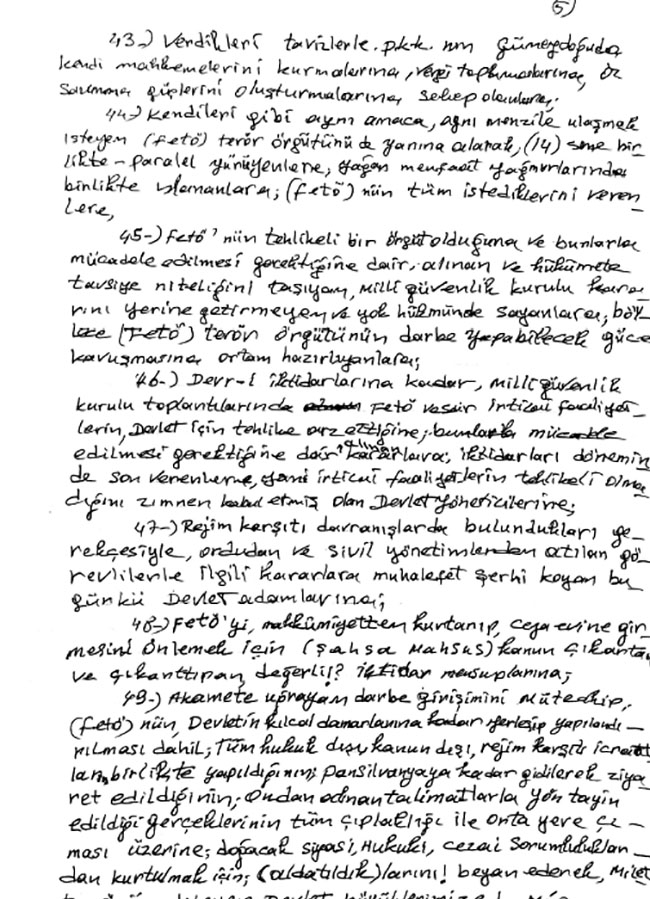 5)
43-) Verdikleri tavizlerle. p.k.k. nın Güneydoğuda
kendi mahkemelerini kurmalarına, vergi toplamalarına, öz
savunma güçlerini oluşturmalarına, sebep olanlara;
44-) Kendileri gibi aynı amaca, aynı menzile ulaşmak
isteyen (fetö) terör örgütünü de yanına alarak, (14) sene bir-
likte - paralel yürüyenlere, yağan menfaat yağmurlarında
birlikte ıslananlara; (fetö) nün tüm istediklerini veren-
lere,
45-) Fetö' nün tehlikeli bir örgüt olduğuna ve bunlarla
mücadele edilmesi gerektiğine dair, alınan ve hükümete
tavsiye niteliğini taşıyan, milli güvenlik kurulu kara-
rını yerine getirmeyen ve yok hükmünde sayanlara; böy-
lece (Fetö) terör örgütünün darbe yapabilecek güce
kavuşmasına ortam hazırlıyanlara;
46-) Devr-i iktidarlarına kadar, milli güvenlik
kurulu toplantılarında Fetö vesair irticai faaliyet-
lerin, Devlet için tehlike arz ettiğine; bunlarla mücadele
edilmesi gerektiğine dair alınan kararlara; iktidarları dönemin-
de son verenlerne, yani irticai faaliyetlerin tehlikeli olma-
dığını zımnen kabul etmiş olan Devlet yöneticilerine;
47-) Rejim karşıtı davranışlarda bulundukları ge-
rekçesiyle, ordudan ve sivil yönetimlerden atılan gö-
revlilerle ilgili kararlara muhalefet şerhi koyan bu
günkü Devlet adamlarına;
48-) Fetö'yi, mahkûmiyetten kurtarıp, ceza evine gir-
mesini önlemek için (şahsa mahsus) kanun çıkartan
ve çıkarttıran, değerli!? iktidar mensuplarına;
49-) Akamete uğrayan darbe girişimini müteakip,
(fetö) nün, Devletin kılcal damarlarına kadar yerleşip yapılandı-
rılması dahil; Tüm hukuk dışı, kanun dışı, rejim karşıtı icraat-
ların, birlikte yapıldığının; Pansilvanyaya kadar gidilerek ziya-
ret edildiğinin; Ondan alınan talimatlarla yön tayin
edildiği gerçeklerinin tüm çıplaklığı ile orta yere çı-
ması üzerine; doğacak siyasi, Hukuki, cezai sorumlulukları-
dan kurtulmak için; (aldatıldık)larını! beyan ederek, Millet